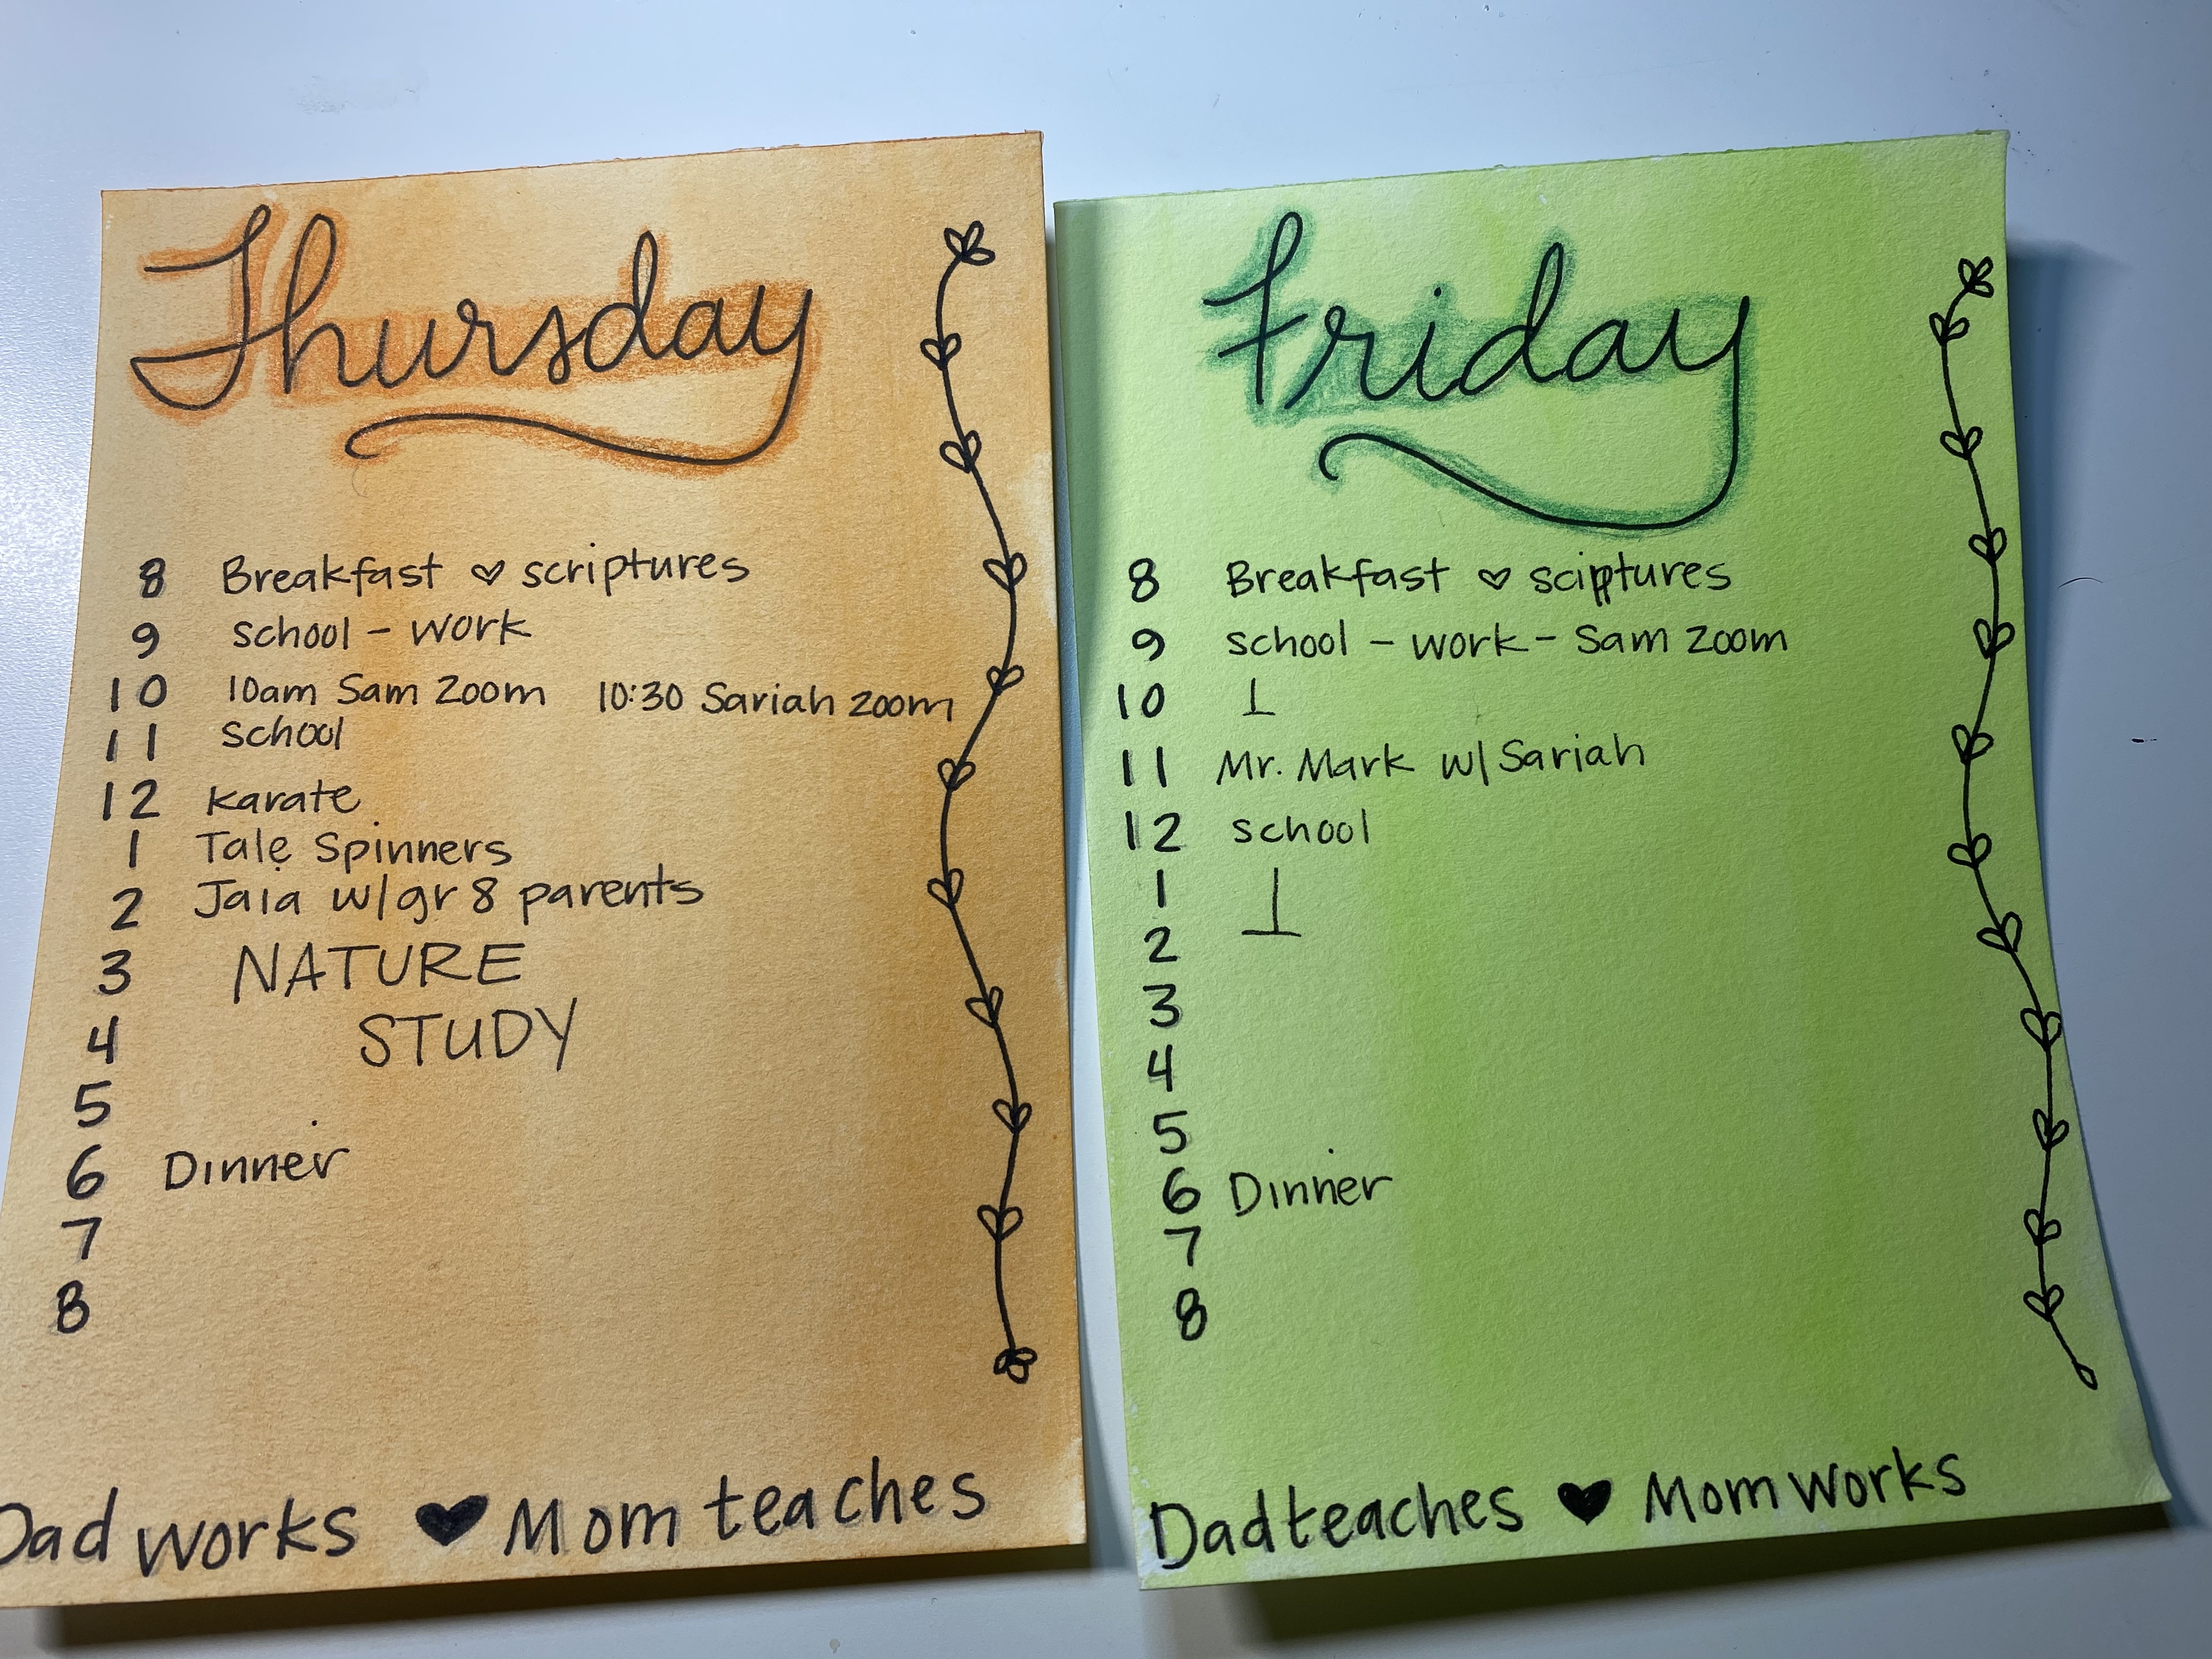 Thursday
8 Breakfast ♡ scriptures
9 school - work
10 10am Sam Zoom 10:30 Sariah zoom
11 school
12 karate
1 Tale Spinners
2 Jaia w/gr 8 parents
3 NATURE
4 STUDY
5
6 Dinner
7
8
Dad works ♥ Mom teaches
Friday
8 Breakfast ♡ sciptures
9 school - work - Sam zoom
10
11 Mr. Mark w/ Sariah
12 school
1
2
3
4
5
6 Dinner
7
8
Dad teaches ♥ Mom works